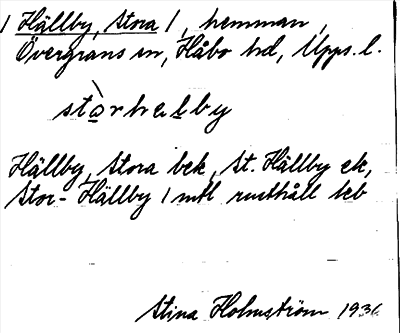 1 Hällby, Stora 1, hemman,
Övergrans sn, Håbo hd, Upps. l.
stòrhęlby
Hällby, Stora bek, St. Hällby ek,
Stor-Hällby 1 mtl rusthåll jeb
Stina Holmström 1936